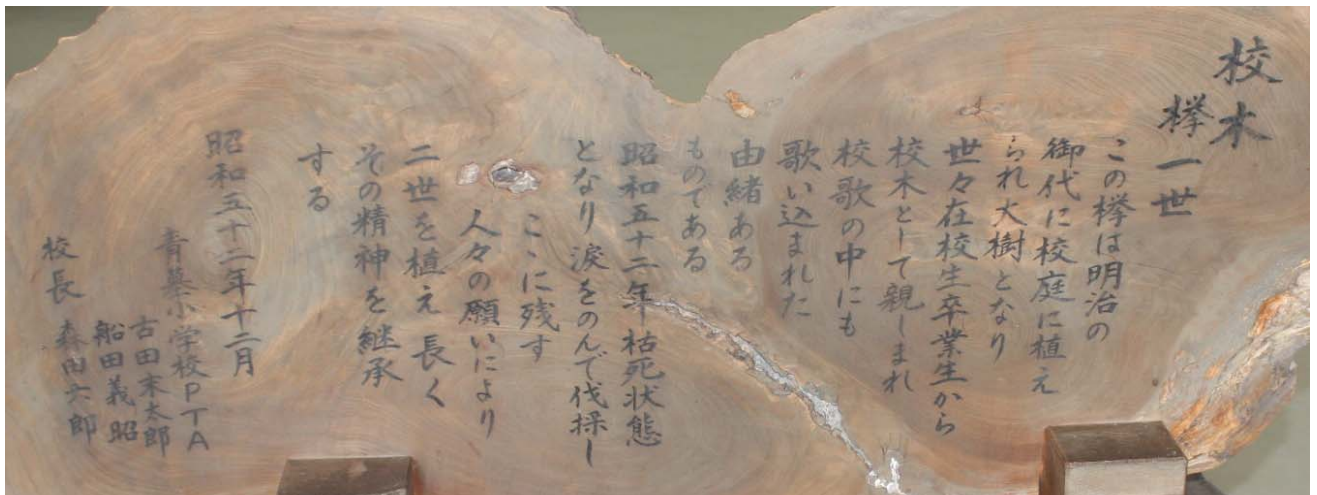 校木
欅一世
この欅は明治の
御代に校庭に植え
られ大樹となり
世々在校生卒業生から
校木として親しまれ
校歌の中にも
歌い込まれた
由緒ある
ものである
昭和五十二年枯死状態
となり涙をのんで伐採し
ここに残す
人々の願いにより
二世を植え長く
その精神を継承
する
昭和五十二年十二月
青墓小学校PTA
古田末太郎
船田義昭
校長 森田六郎